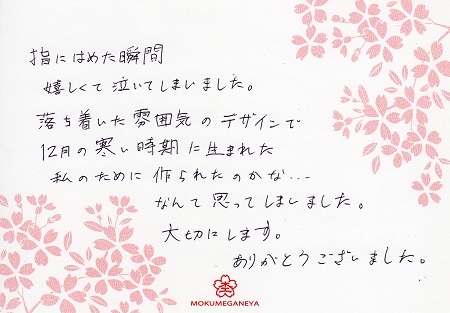 指にはめた瞬間
嬉しくて泣いてしまいました。
落ち着いた雰囲気のデザインで
12月の寒い時期に生まれた
私のために作られたのかな...
なんて思ってしまいました。
大切にします。
ありがとうございました。
MOKUMEGANEYA